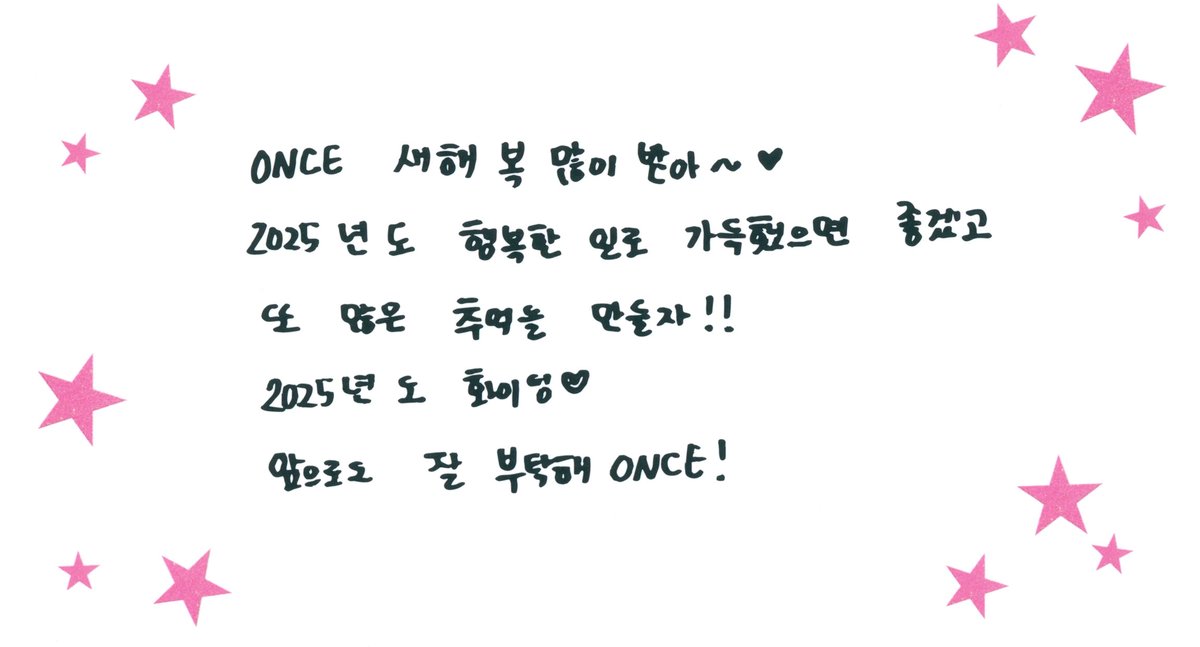 ONCE 새해 복 많이 받아~♥
2025년도 행복한 일로 가득했으면 좋겠고
또 많은 추억들 만들자!!
2025년도 화이팅♥
앞으로도 잘 부탁해 ONCE!